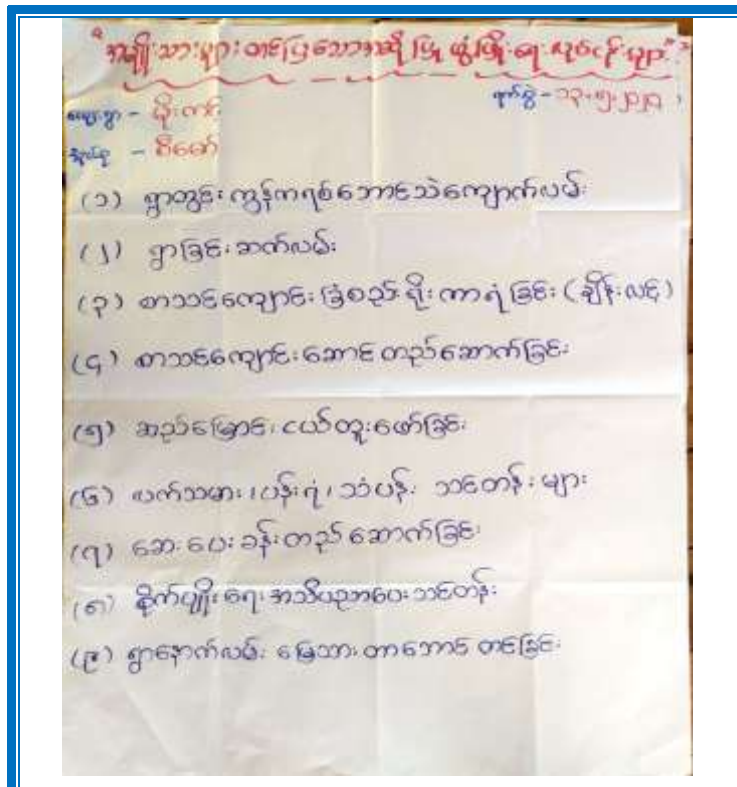 "အမျိုးသားများတင်ပြသောအဆိုပြု ဖွံ့ဖြိုးရေးလုပ်ငန်းများ"
ကျေးရွာ - မိုးကင်း
ရက်စွဲ - ၁၃.၅.၂၂
(၁) ရွာတွင်း ကွန်ကရစ်ဘောင်သဲကျောက်လမ်း
(၂) ရွာခြင်းဆက်လမ်း
(၃) စာသင်ကျောင်းခြံစည်းရိုးကာရံခြင်း (ချိန်းလင့်)
(၄) စာသင်ကျောင်းဆောင်တည်ဆောက်ခြင်း
(၅) ဆည်မြောင်းငယ်တူးဖော်ခြင်း
(၆) လက်သမား၊ ပန်းရံ၊ သံပန်း သင်တန်းများ
(၇) ဆေးပေးခန်းတည်ဆောက်ခြင်း
(၈) စိုက်ပျိုးရေးအသိပညာပေးသင်တန်း
(၉) ရွာနောက်လမ်း မြေသားတာဘောင် တင်ခြင်း